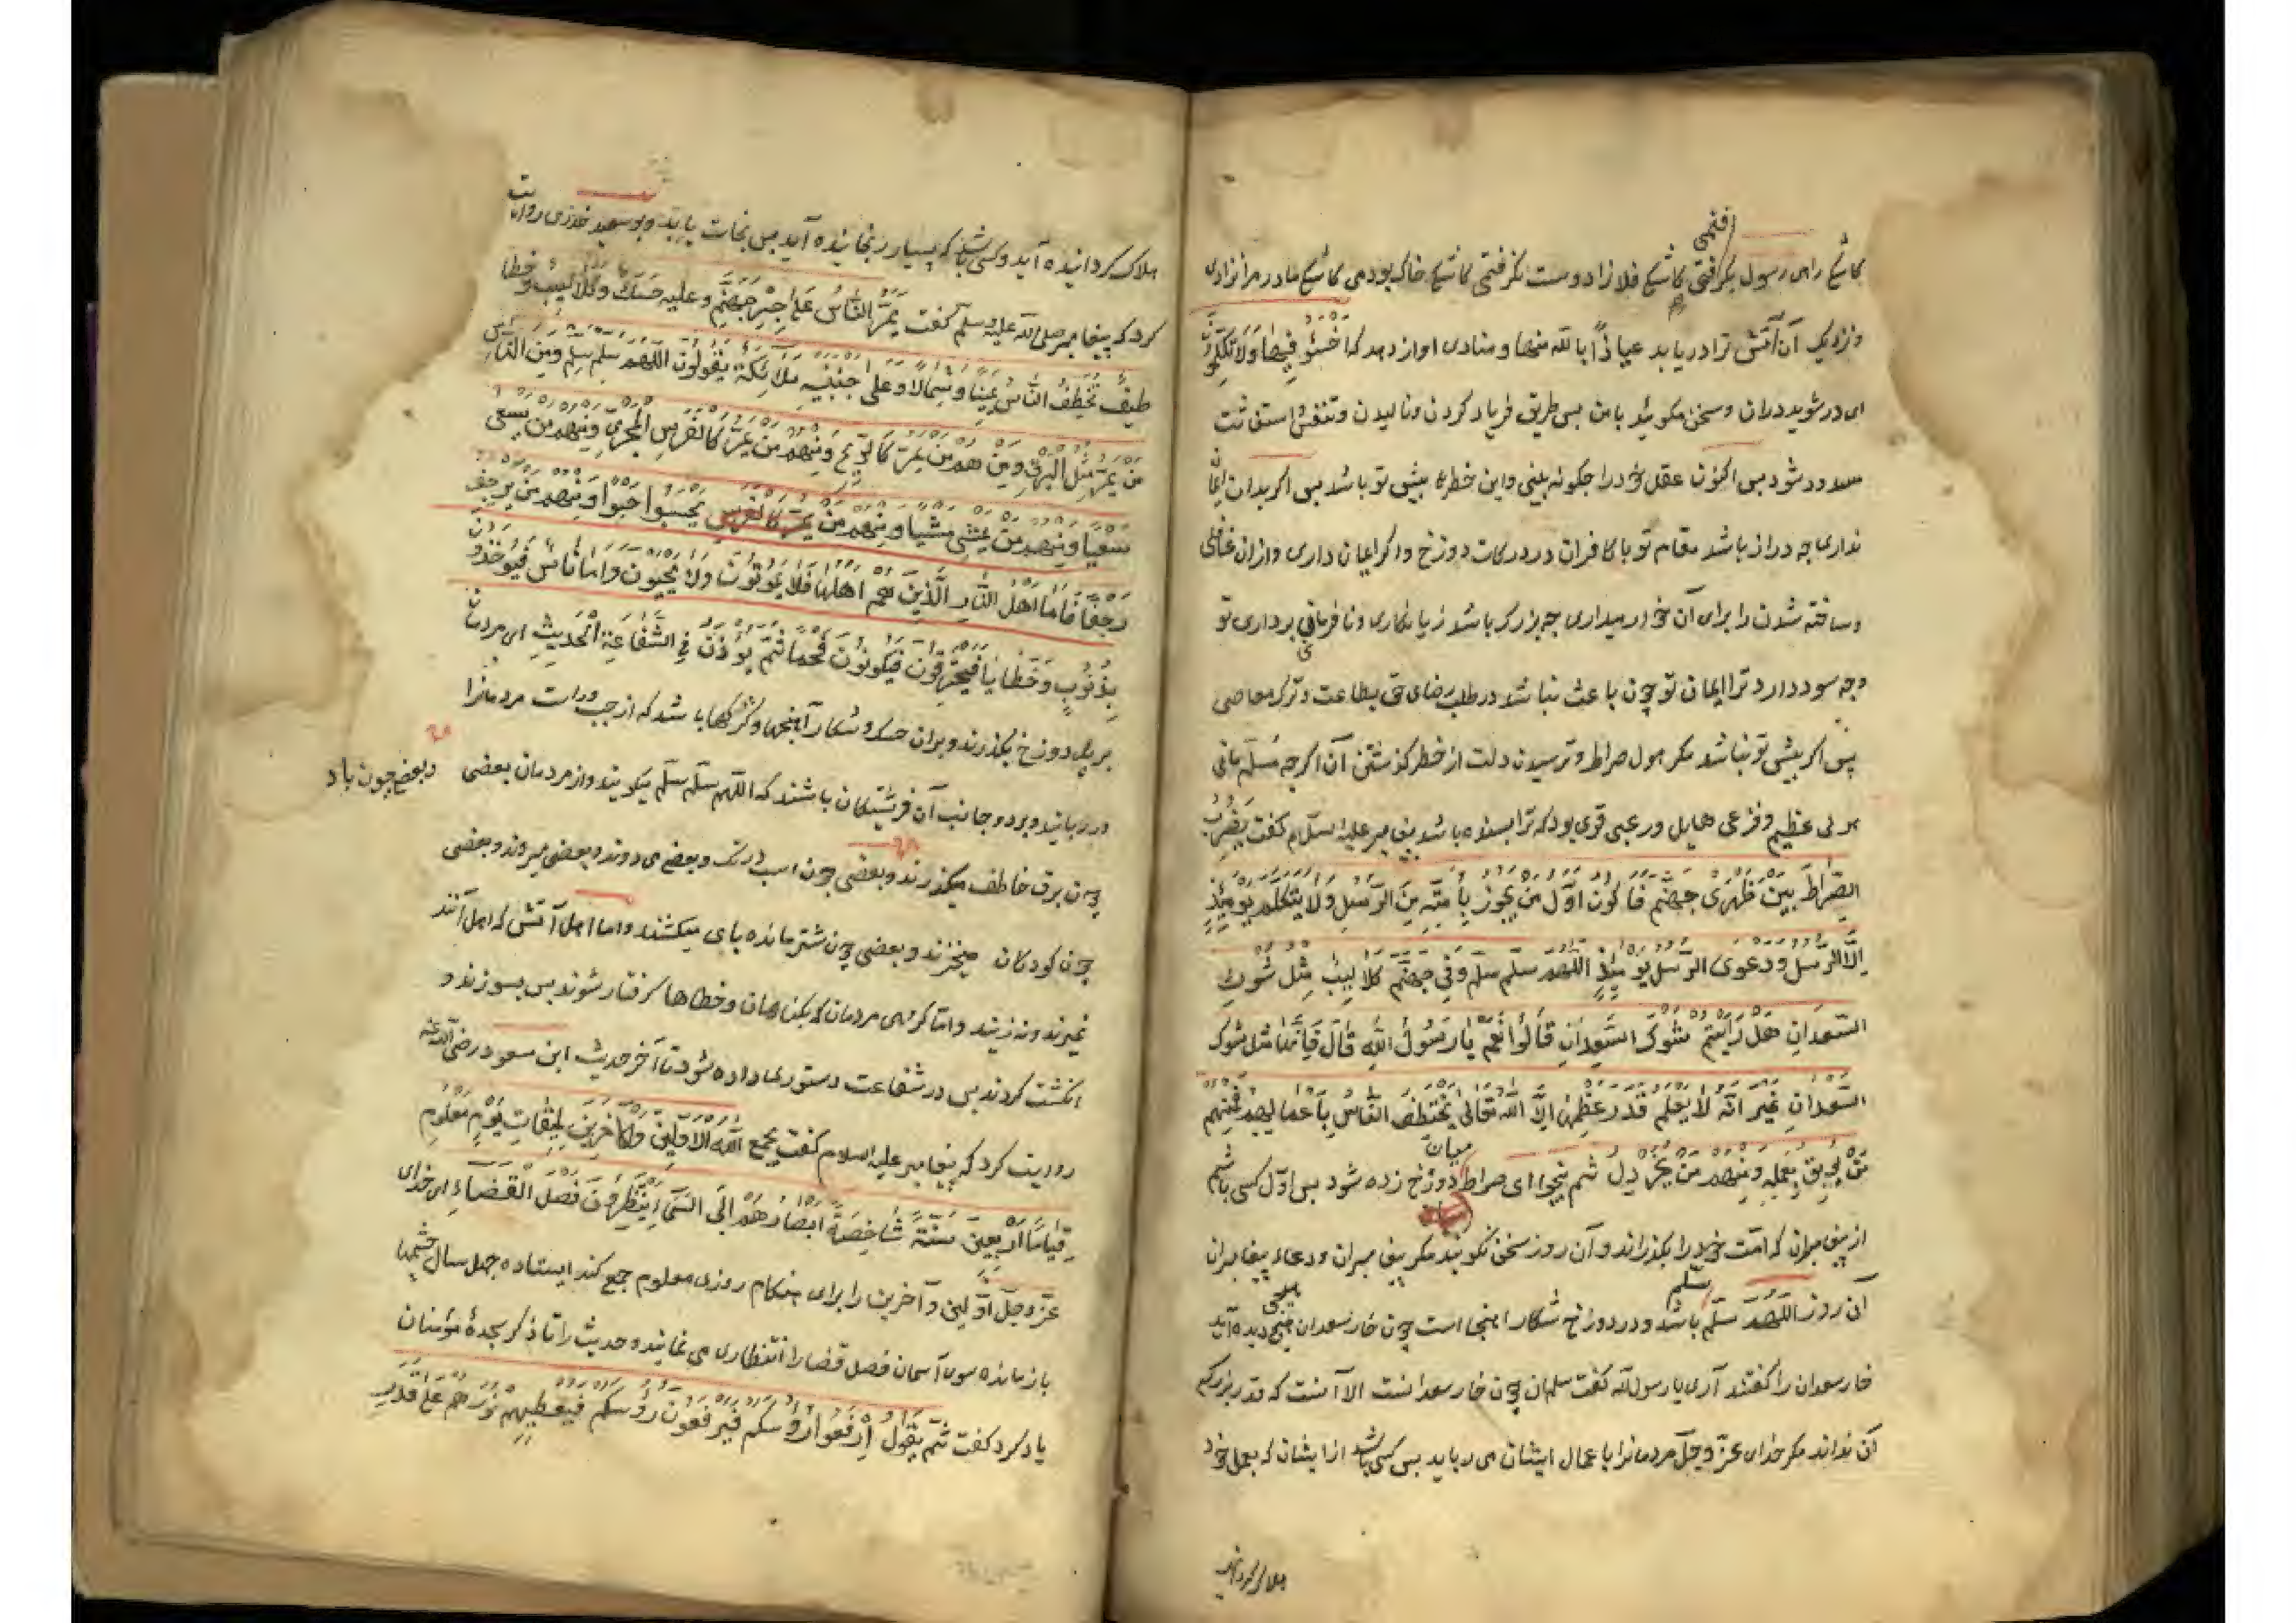 کاشکی راه رسول بگرفتمی کاشکی فلانرا دوست نگرفتمی کاشکی خاک بودمی کاشکی مادر مرا نزادی
و نزدیک آن آتش ترا دریابد عیاذاً بالله منها و منادی اواز دهد که اخسئو فیها ولا تکلمون
ای در شوید دران و سخن مکوئید با من بس طریق فریاد کردن و نالیدن و تنفس استغاثت
مسدود شود بس اکنون عقل خود را چکونه بینی و این خطرها بیش تو باشد بس اکر بدان ایمان
نداری چه دراز باشد مقام تو با کافران در درکات دوزخ و اکر ایمان داری و ازان غافلی
و ساخته شدن را برای آن خوار میداری چه بزرک باشد زیانکاری و نافرمانی برداری تو
و چه سود دارد ترا ایمان تو چون باعث نباشد در طلب رضای حق بطاعت و ترک معاصی
پس اکر بیش تو نباشد مکر هول صراط و ترسیدن دلت از خطر کذشتن آن اکرچه مسلم مانی
هولی عظیم و فزعی هایل و رعبی قوی بود که ترا بسنده باشد بیغامبر علیه السلام کفت یضرب
الصراط بین ظهری جهنم فاکون اول من یجوز بامته من الرسل ولا یتکلم یومئذ
الا الرسل و دعوی الرسل یومئذ اللهم سلم سلم و فی جهنم کلالیب مثل شوک
السعدان هل رایتم شوک السعدان قالوا نعم یا رسول الله قال فانها مثل شوک
السعدان غیر انه لا یعلم قدر عظمها الا الله تعالی یختطف الناس باعمالهم فمنهم
من یوبق بعمله و منهم من یخردل ثم ینجوا ای صراط میان دوزخ زده شود بس اول کسی باشم
از بیغامبران که امت خود را بکذراند و آن روز سخن نکویند مکر بیغامبران و دعاء بیغامبران
آن روز اللهم سلم سلم باشد و در دوزخ شکار اهنجها است چون خار سعدان هیچ دیده آید
خار سعدان را کفتند آری یا رسول الله کفت مسلمان چون خار سعدانست الا آنست که قدر بزرکی
آن نداند مکر خدای عز و جل مردمانرا باعمال ایشان می رباید بس کسی باشد از ایشان که بعمل خود
هلاک کردانیده
هلاک کردانیده آید و کسی باشد که بسیار رنجانیده آید بس نجات یابد و بو سعید خدری روایت
کرد که بیغامبر صلی الله علیه وسلم کفت یمر الناس علی جسر جهنم و علیه حسک و کلالیب و خطا
طیف تخطف الناس یمینا و شمالا و علی جنبیه ملائکة یقولون اللهم سلم سلم و من الناس
من یمر مثل البرق و منهم من یمر کالریح و منهم من یمر کالفرس المجری و منهم من یسعی
سعیا و منهم من یمشی مشیا و منهم من یحبوا حبوا و منهم من یزحف
زحفا فاما اهل النار الذین هم اهلها فلا یموتون ولا یحیون و اما ناس فیوخذون
بذنوب و خطایا فیحترقون فیکونون فحما ثم یؤذن فی الشفاعة الحدیث ای مردمان
بر پل دوزخ بکذرند و بران حسک و شکار آهنجها و کژکها باشد که از چب و راست مردمانرا
در رباید و بر دو جانب آن فرشتکان باشند که اللهم سلم سلم میکویند و از مردمان بعضی
و بعضی چون باد
چون برق خاطف میکذرند و بعضی چون اسب دونده و بعضی می دوند و بعضی میروند و بعضی
چون کودکان میخزند و بعضی چون شتر مانده بای میکشند و اما اهل آتش که اهل آنند
نمیرند و نه زیند و اما کروهی مردمان که بکناهان و خطاها کرفتار شوند بس بسوزند و
انکشت کردند بس در شفاعت دستوری داده شود تا آخر حدیث ابن مسعود رضی الله عنه
روایت کرد که بیغامبر علیه السلام کفت یجمع الله الاولین والاخرین لمیقات یوم معلوم
قیاما اربعین سنة شاخصة ابصارهم الی السماء ینتظرون فصل القضاء ای خدای
عز و جل اولین و آخرین را برای هنکام روزی معلوم جمع کند ایستاده چهل سال چشمها
باز مانده سوی آسمان فصل قضا را انتظاری می نمایند و حدیث را تا ذکر سجدهٔ مؤمنان
یاد کرد کفت ثم یقول ارفعوا رؤسکم فیرفعون رؤسکم فیعطیهم نورهم علی قدر